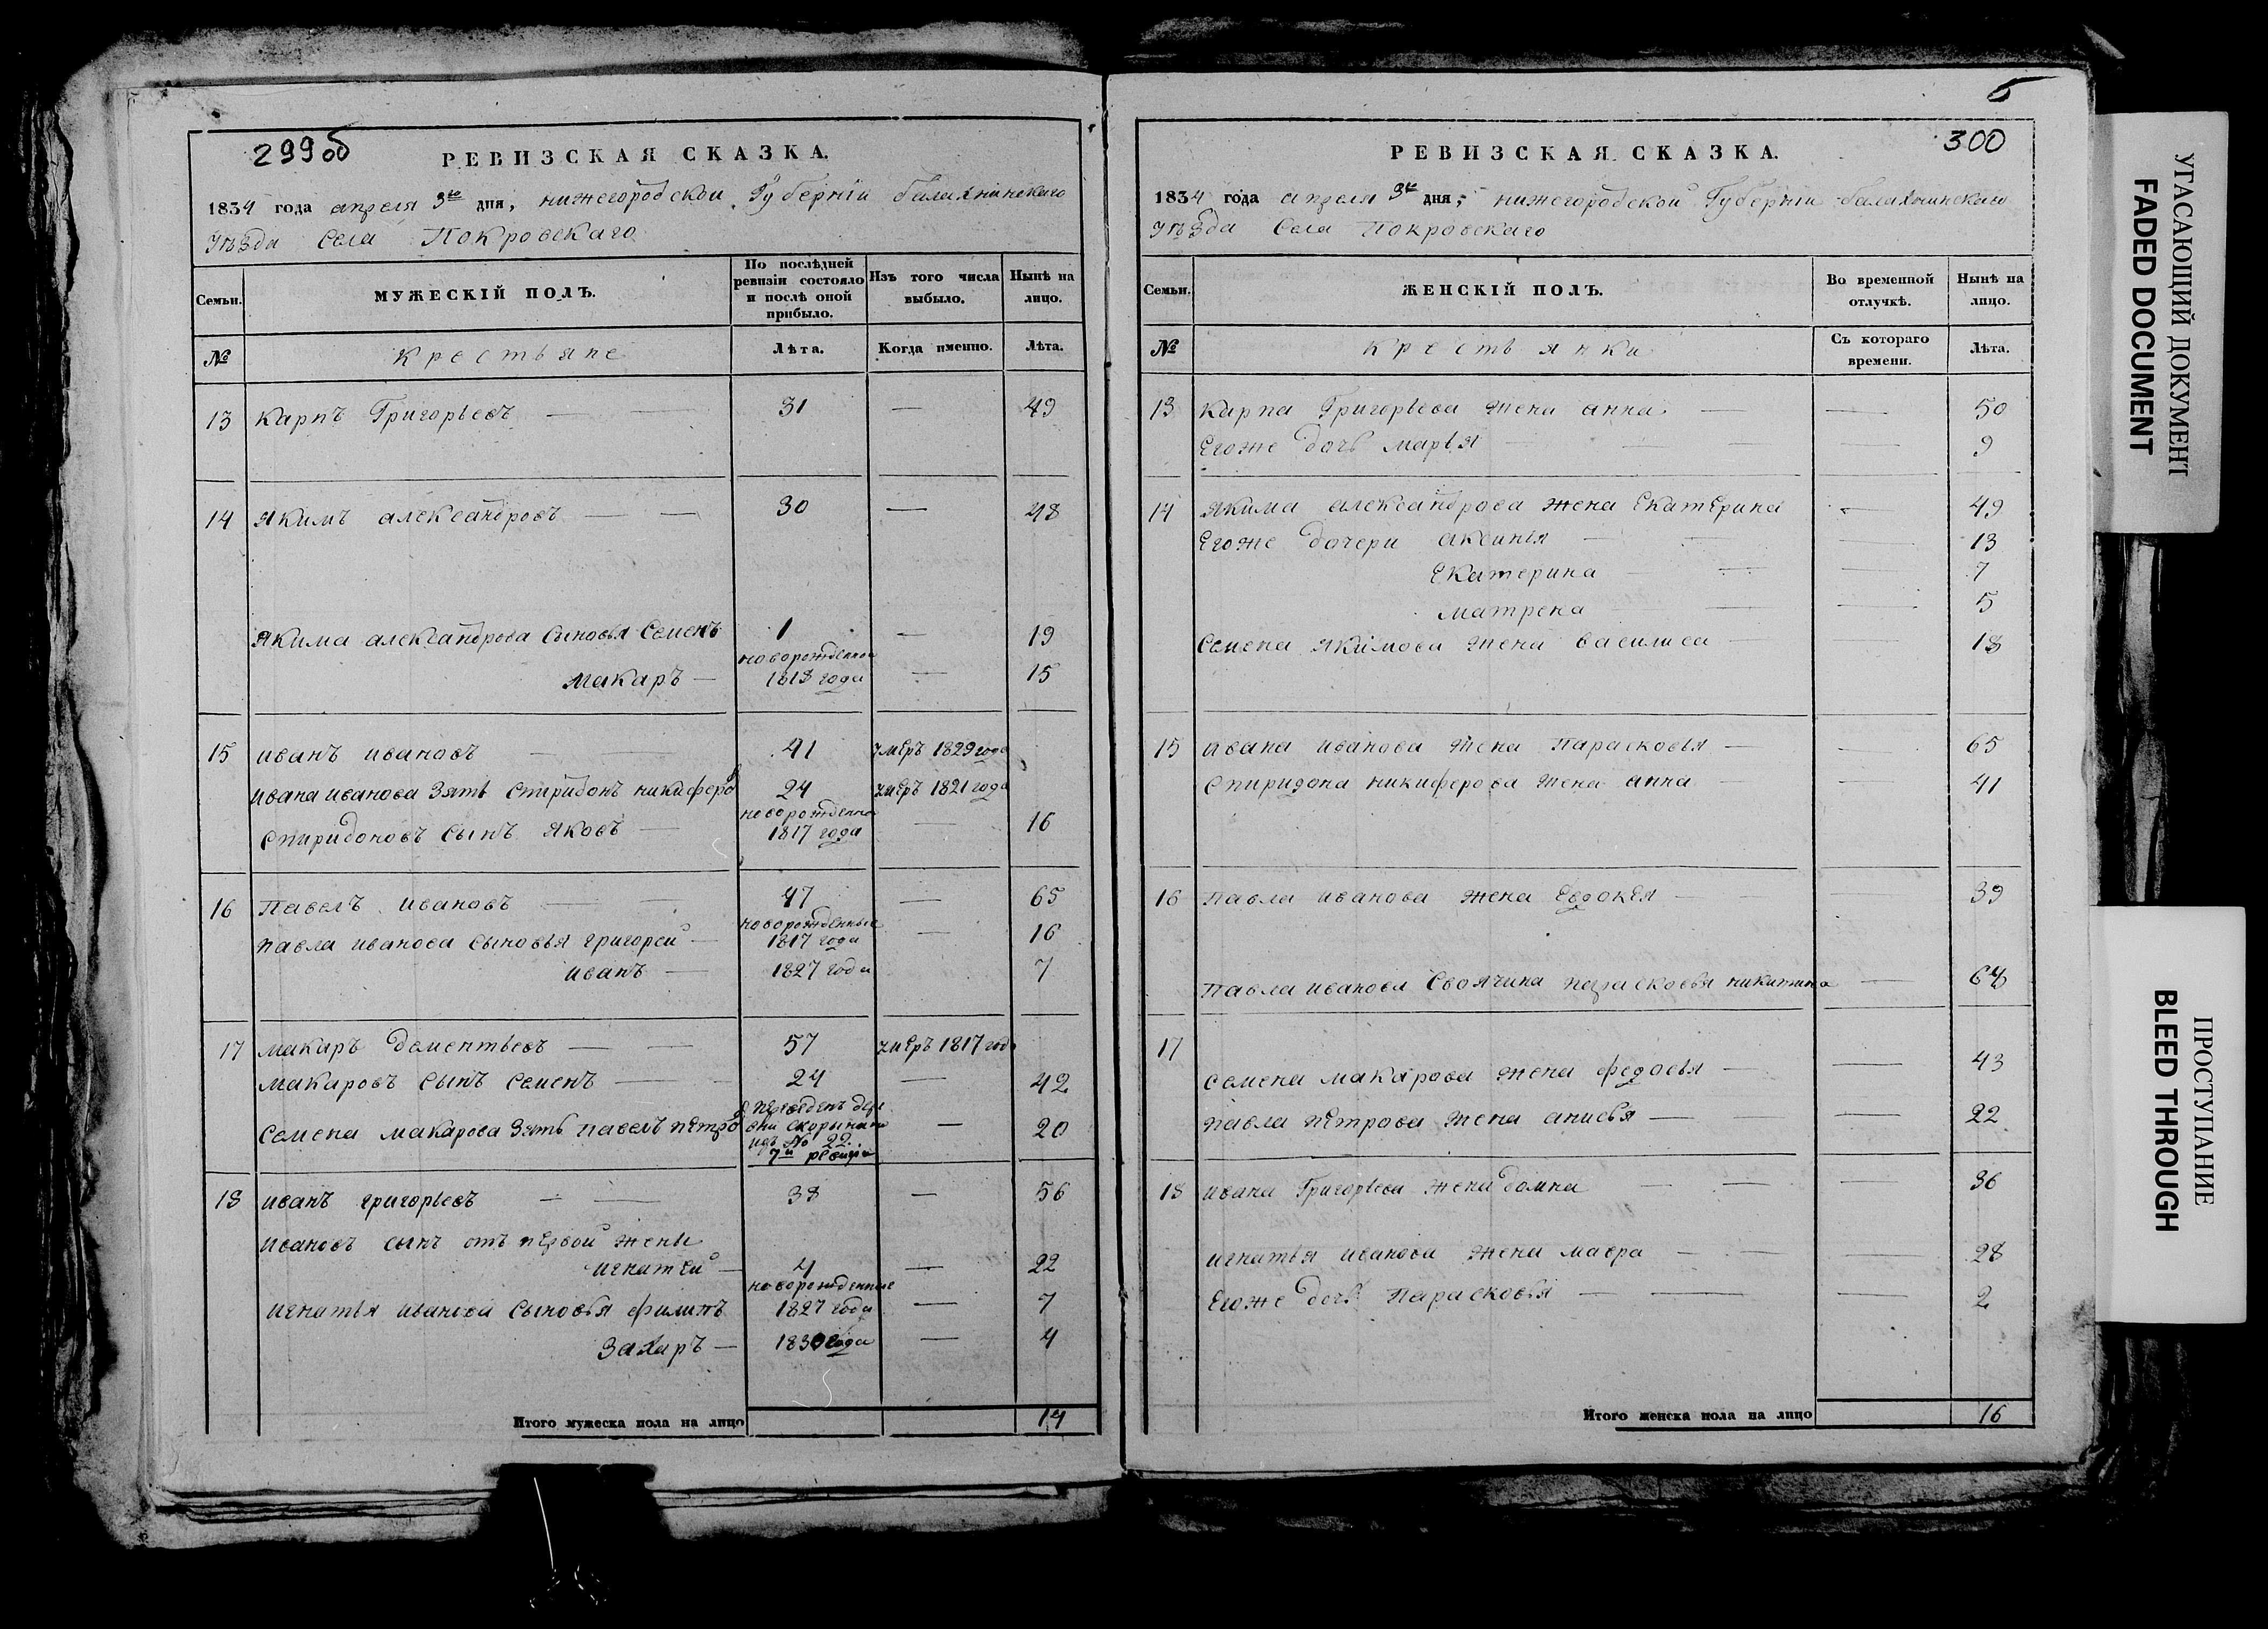 299об
РЕВИЗСКАЯ СКАЗКА.
1834 года апреля 3го дня, нижегородской Губернiи балахнинскаго
Уѣзда Села Покровскаго
Семьи.
МУЖЕСКІЙ ПОЛЪ.
По послѣдней ревизіи состояло и послѣ оной прибыло.
Изъ того числа выбыло.
Нынѣ на лицо.
№
Крестьяне
Лѣта.
Когда именно.
Лѣта.
13 Карпъ Григорьевъ — 31 — 49
14 Якимъ александровъ — — 30 — 48
Якима александрова сыновья Семенъ 1 — 19
новорожденной
Макаръ — 1818 года — 15
15 иванъ ивановъ — 41 умеръ 1829 года
ивана иванова зять спиридонъ никиферовъ 24 умеръ 1821 года
новорожденной
спиридоновъ сынъ яковъ — 1817 года — 16
16 Павелъ ивановъ — 47 — 65
новорожденные
павла иванова сыновья григорей — 1817 года — 16
иванъ — 1827 года 7
17 макаръ дементьевъ — — 57 умеръ 1817 года
макаровъ сынъ семенъ — 24 — 42
семена макарова зять павелъ петровъ
переведенъ дере
вни
№ 22.
7й ревизiи
— 20
18 иванъ григорьевъ — — 38 — 56
ивановъ сынъ отъ первой жены
игнатей — 4 — 22
новорожденные
игнатья иванова сыновья филипъ 1827 года — 7
Захаръ — 1830 года — 4
Итого мужеска пола на лицо 14
б
300
РЕВИЗСКАЯ СКАЗКА.
1834 года апреля 3го дня; нижегородской Губернiи балахнинскаго
Уѣзда Села Покровскаго
Семьи.
ЖЕНСКІЙ ПОЛЪ.
Во временной отлучкѣ.
Нынѣ на лицо.
№
Крестьянки
Съ котораго времени.
Лѣта.
13 Карпа Григорьева жена анна — — 50
Егоже дочь марья — — 9
14 Якима александрова жена Екатерина — 49
Егоже дочери аксинья — — 13
Екатерина — — 7
матрена — — 5
Семена якимова жена василиса — — 18
15 ивана иванова жена Парасковья — — 65
спиридона никиферова жена анна — — 41
16 павла иванова жена Евдокея — — 39
Павла иванова своячина парасковья никитина — 64
17
семена макарова жена федосья — — 43
павла петрова жена анисья — — 22
18 ивана Григорьева жена домна — — 36
игнатья иванова жена мавра — — 28
Егоже дочь Парасковья — — 2
Итого женска пола на лицо 16
УГАСАЮЩИЙ ДОКУМЕНТ
FADED DOCUMENT
ПРОСТУПАНИЕ
BLEED THROUGH